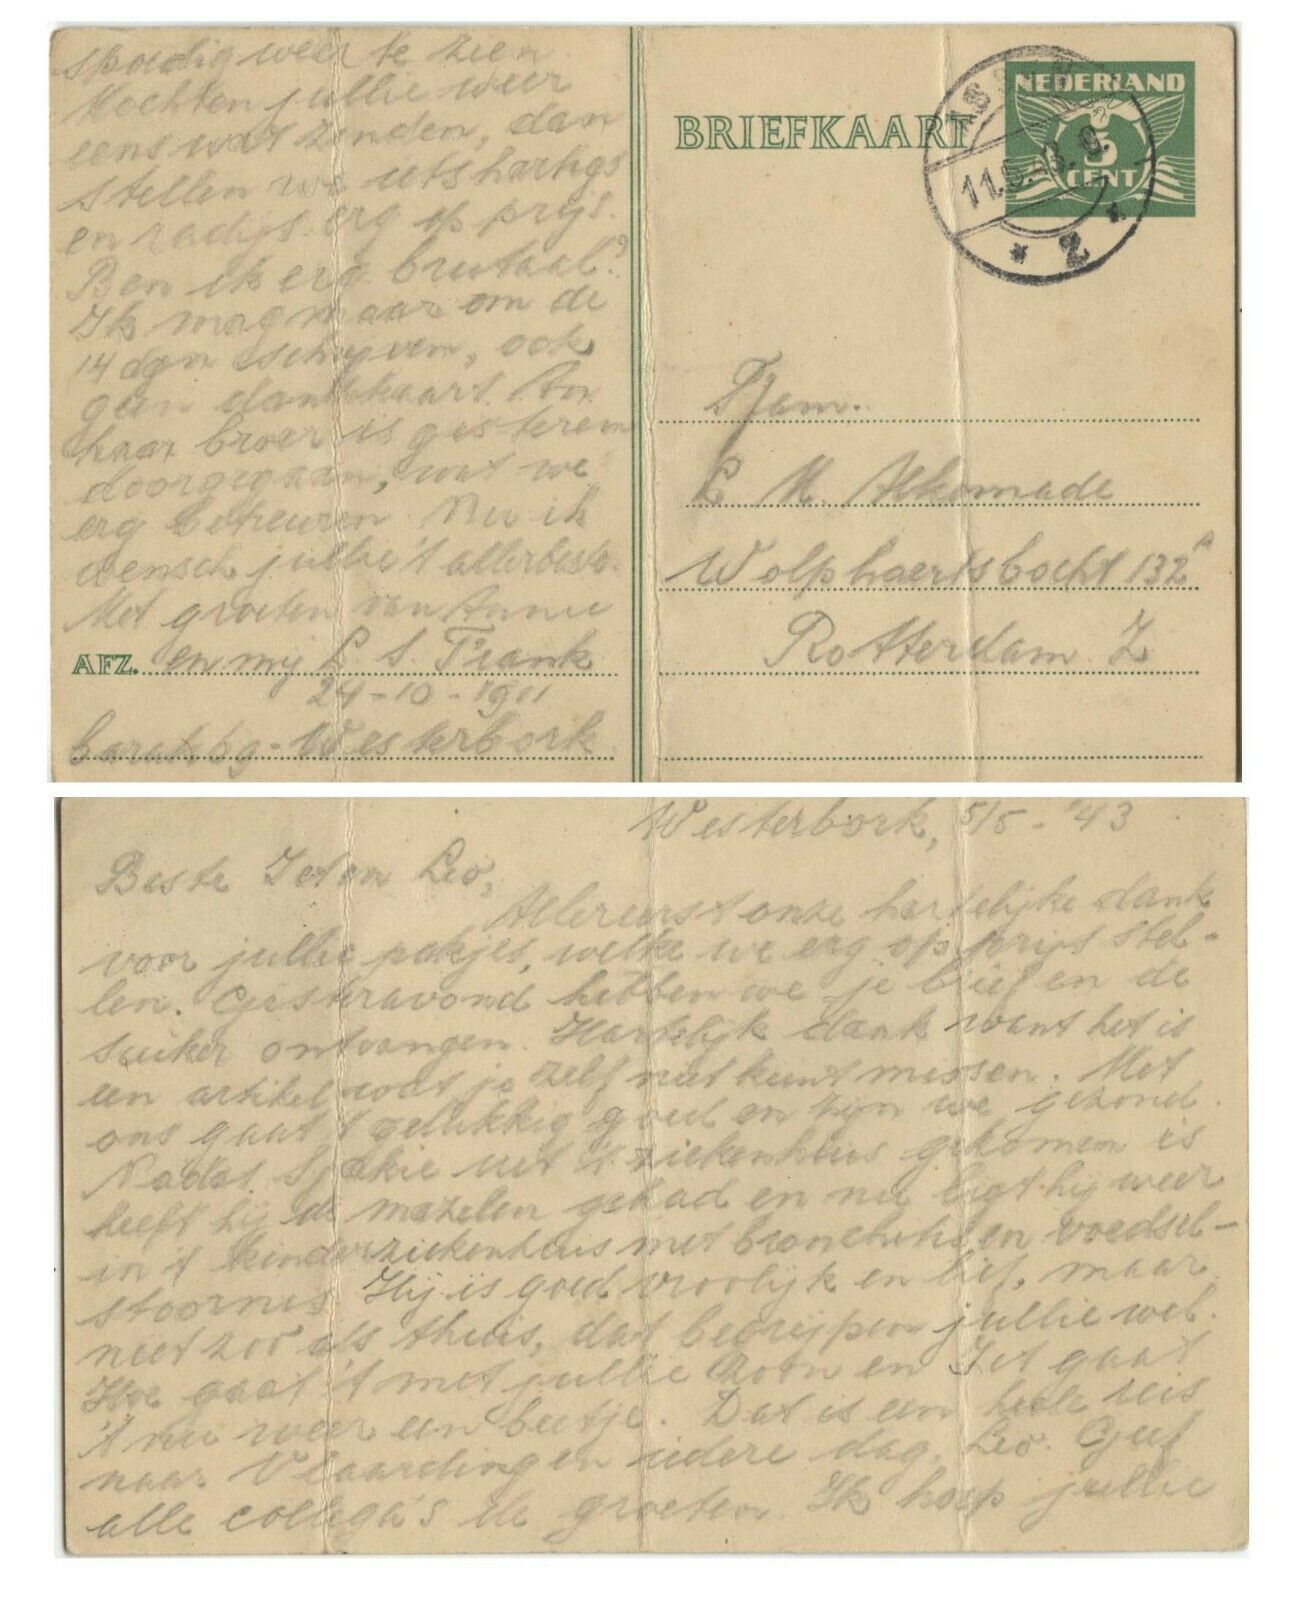 spoedig weer te zien
Mochten jullie weer
eens wat zenden, dan
stellen we iets hartigs
en radijs erg op prijs.
Ben ik erg brutaal?
Ik mag maar om de
14 dgn schrijven, ook
geen dankkaart. An
haar broer is gisteren
doorgegaan, wat we
erg betreuren. Nu ik
wensch jullie 't allerbeste.
Met groeten van Annie
AFZ. en mij L S. Frank
24-10-1901
barak 69-Westerbork
BRIEFKAART
NEDERLAND
5
CENT
ASSEN
2
Fam.
L M. Alkemade
Wolphaertsbocht 132a
Rotterdam Z
Westerbork, 5/5-'43
Beste Jet en Leo,
Allereerst onze hartelijke dank
voor jullie pakjes, welke we erg op prijs stel-
len. Gisteravond hebben we je brief en de
suiker ontvangen. Hartelijk dank want het is
een artikel wat je zelf niet kunt missen. Met
ons gaat 't gelukkig goed en zijn we gezond.
Nadat Sjakie uit 't ziekenhuis gekomen is
heeft hij de mazelen gehad en nu ligt hij weer
in 't kinderziekenhuis met bronchitis en voedsel-
stoornis. Hij is goed vroolijk en lief, maar
niet zoo als thuis, dat begrijpen jullie wel.
Hoe gaat 't met jullie zoon en Jet gaat
't nu weer een beetje. Dat is een heele reis
naar Vlaardingen iedere dag, Leo. Geef
alle collega's de groeten. Ik hoop jullie